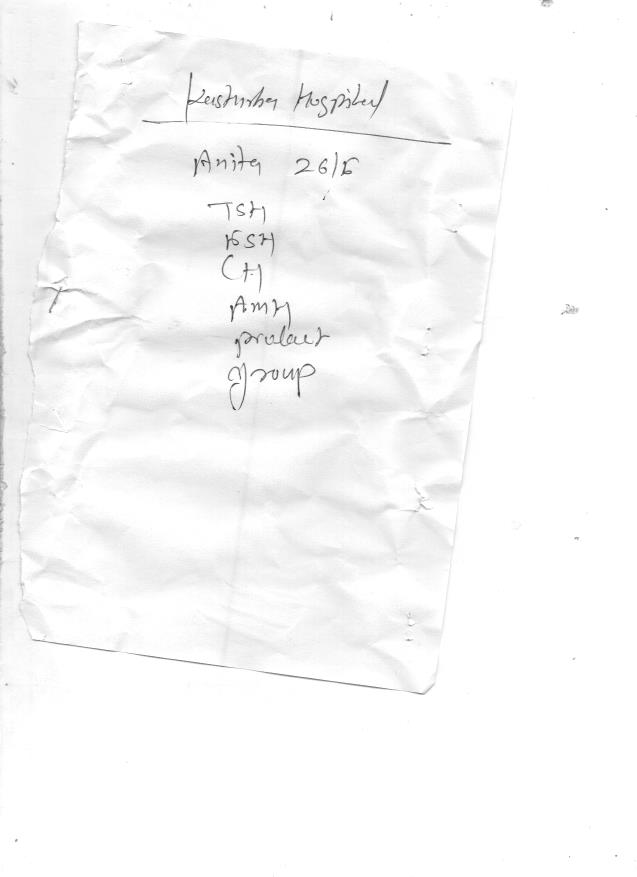 Kasturba Hospital
Anita 26/F
TSH
FSH
LH
AMH
prolact
group